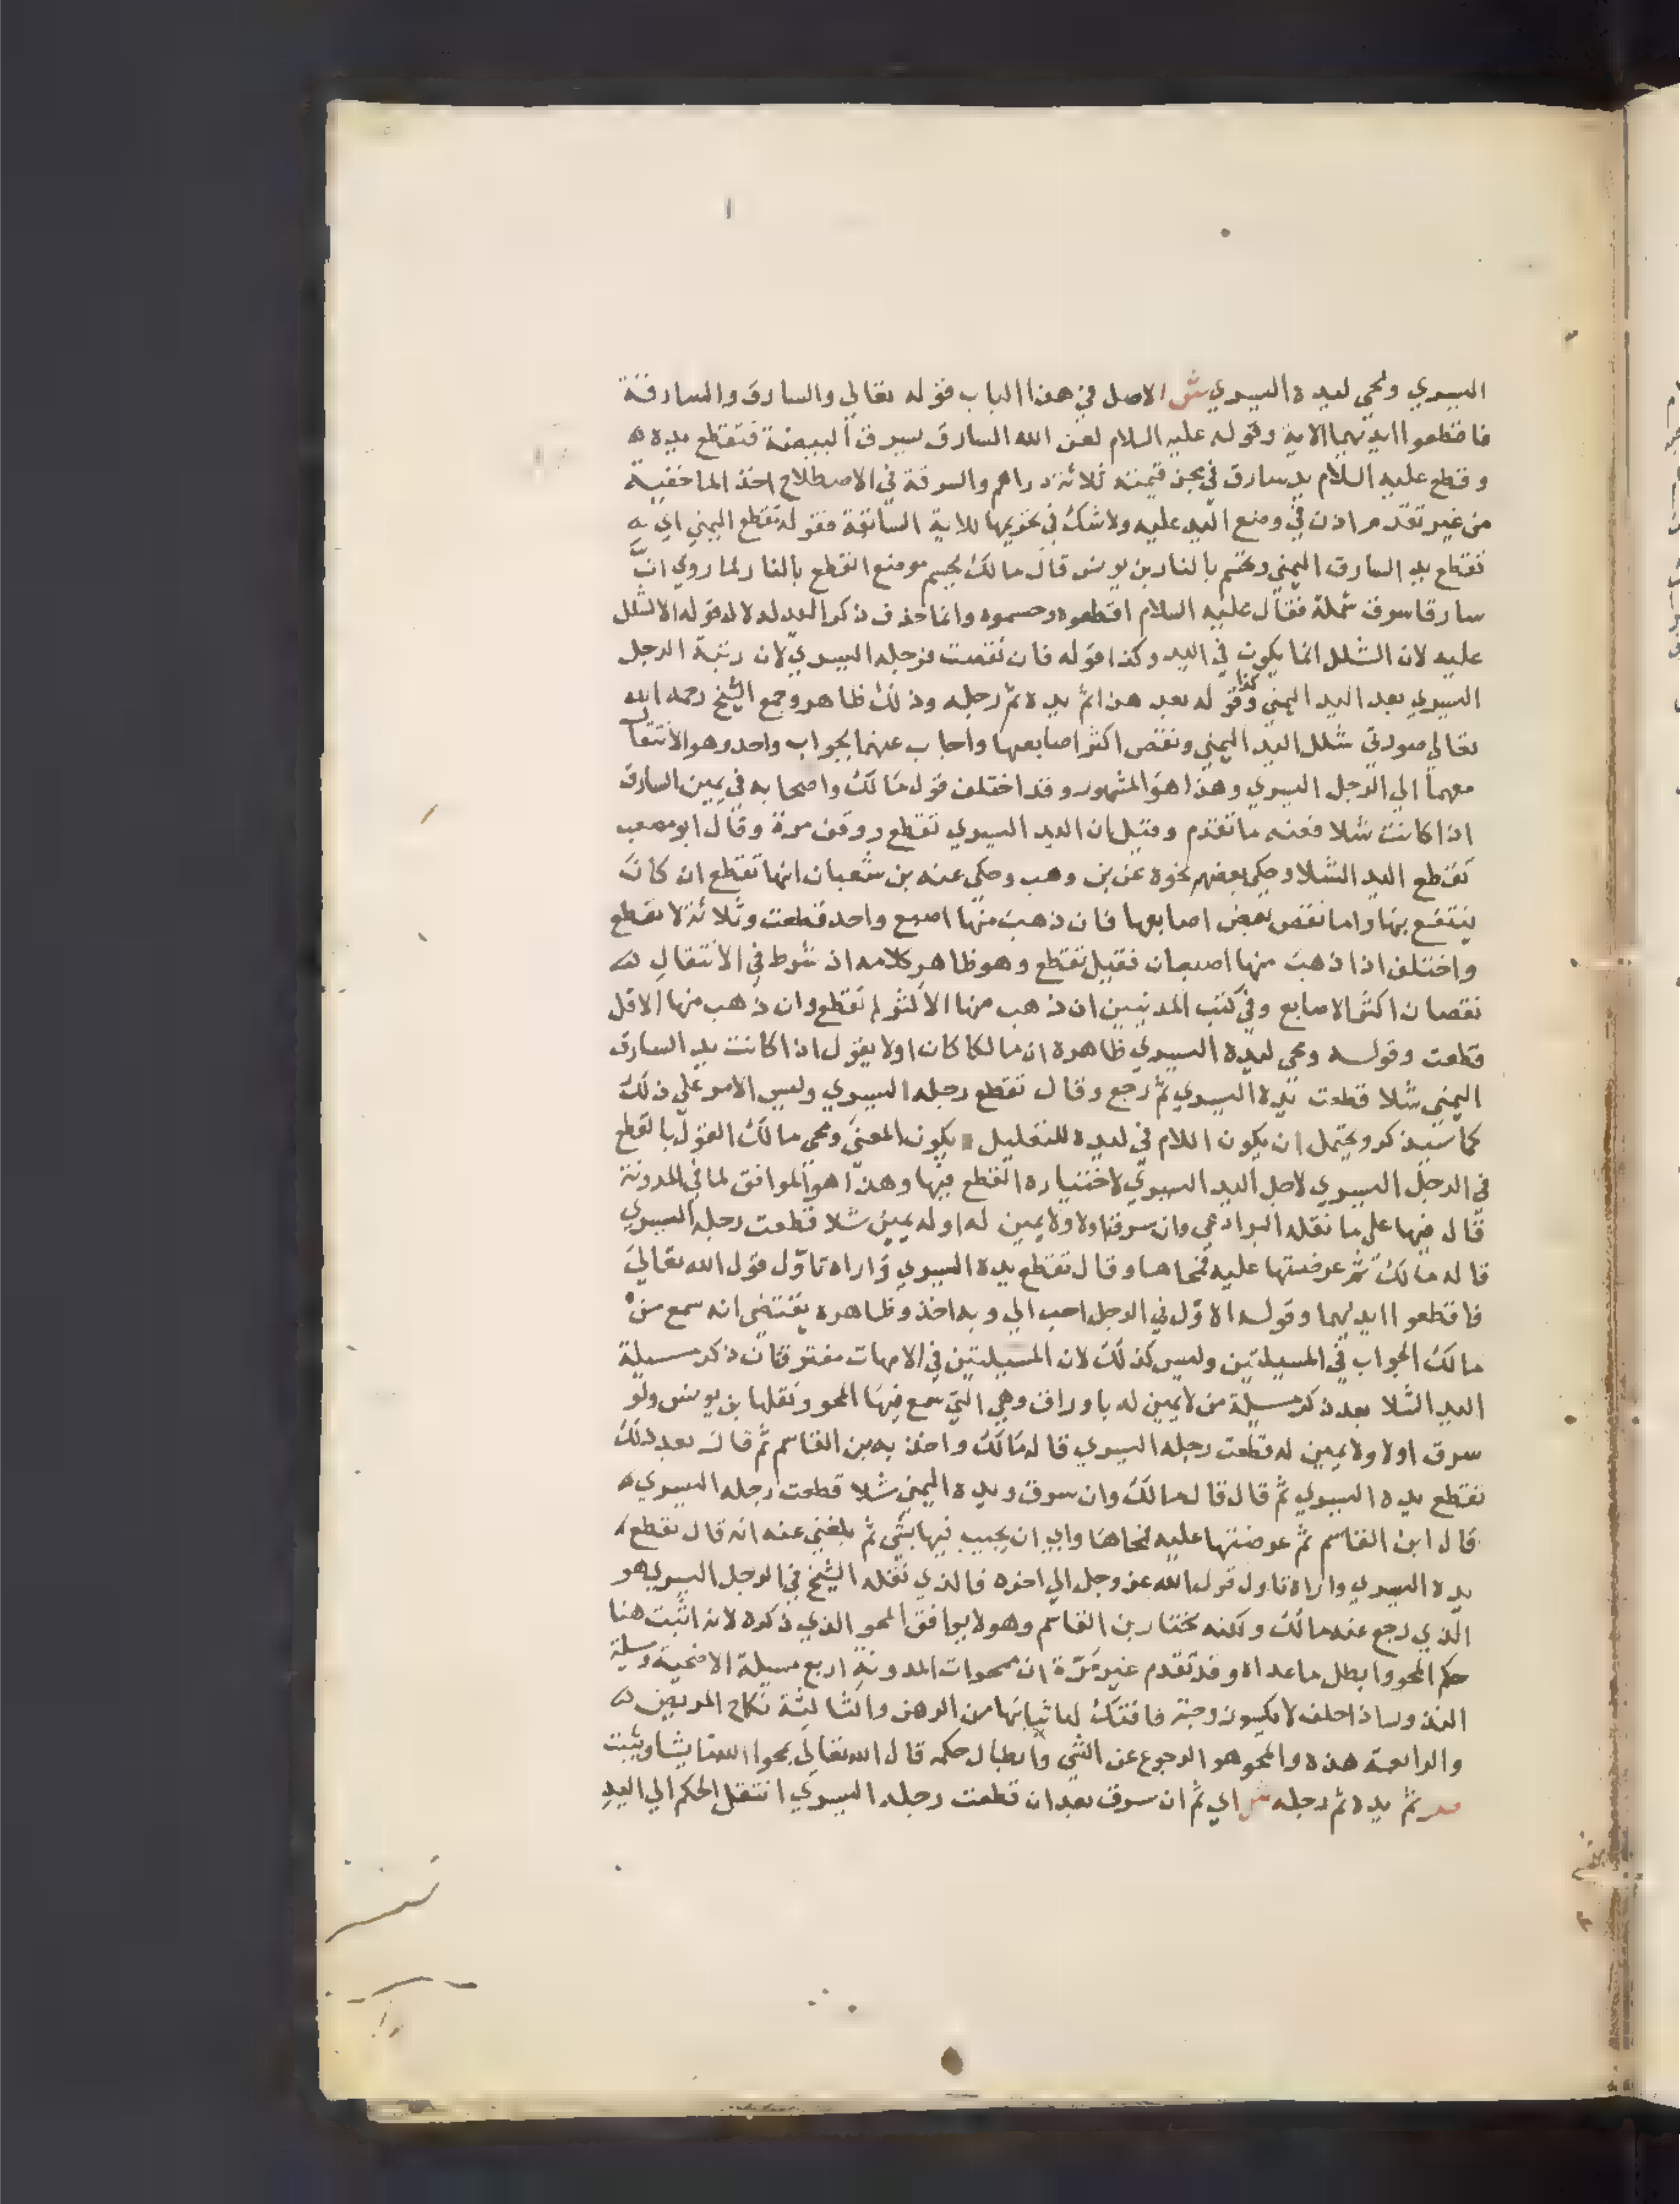 اليسري ومحي ليده اليسري ش الاصل في هذا الباب قوله تعالي والسارق والسارقة
فاقطعوا ايديهما الاية وقوله عليه السلام لعن الله السارق يسرق البيضة فتقطع يده
وقطع عليه السلام يد سارق في مجن قيمته ثلاثة دراهم والسرقة في الاصطلاح اخذ المال خفية
من غير تقدم اذن في وضع اليد عليه ولا شك في تحريمها للاية السابقة فقوله تقطع اليمني اي
تقطع يد السارق اليمني وتحسم بالنار بن يونس قال مالك يحسم موضع القطع بالنار لما روي ان
سارقا سرق شملة فقال عليه السلام اقطعوه وحسموه وانما حذف ذكر اليد لدلالة قوله الا لشلل
عليه لان الشلل انما يكون في اليد وكذا قوله فان نقصت فرجله اليسري لان رتبة الرجل
اليسري بعد اليد اليمني وكذا قوله بعد هذا ثم يده ثم رجله وذلك ظاهر وجمع الشيخ رحمه الله
تعالي صورتي شلل اليد اليمني ونقص اكثر اصابعها واجاب عنهما بجواب واحد وهو الانتقال
معهما الي الرجل اليسري وهذا هو المشهور وقد اختلف قول مالك واصحابه في يمين السارق
اذا كانت شلا فعنه ما تقدم وقيل ان اليد اليسري تقطع ووقف مرة وقال ابو مصعب
تقطع اليد الشلا وحكي بعضهم نحوه عن بن وهب وحكي عنه بن شعبان انها تقطع ان كان
ينتفع بها واما نقص بعض اصابعها فان ذهب منها اصبع واحد قطعت وثلاثة لا تقطع
واختلف اذا ذهب منها اصبعان فقيل تقطع وهو ظاهر كلامه اذ شرط في الانتقال
نقصان اكثر الاصابع وفي كتب المدنيين ان ذهب منها الاكثر لم تقطع وان ذهب منها الاقل
قطعت وقوله ومحي ليده اليسري ظاهره ان مالكا كان اولا يقول اذا كانت يد السارق
اليمني شلا قطعت يده اليسري ثم رجع وقال تقطع رجله اليسري وليس الامر علي ذلك
كما سيذكر ويحتمل ان يكون اللام في ليده للتعليل ويكون المعني ومحي مالك القول بالقطع
في الرجل اليسري لاجل اليد اليسري لاختياره القطع فيها وهذا هو الموافق لما في المدونة
قال فيها علي ما نقله البرادعي وان سرق اولا ولا يمين له او له يمين شلا قطعت رجله اليسري
قاله مالك ثم عرضتها عليه فمحاها وقال تقطع يده اليسري واراه تاول قول الله تعالي
فاقطعوا ايديهما وقوله الاول في الرجل احب الي وبه اخذ وظاهره يقتضي انه سمع من
مالك الجواب في المسيلتين وليس كذلك لان المسيلتين في الامهات مفترقتان ذكر مسيلة
اليد الشلا بعد ذكر مسيلة من لا يمين له باوراق وهي التي سمع فيها المحو ونقلها بن يونس ولو
سرق اولا ولا يمين له قطعت رجله اليسري قاله مالك واخذ به بن القاسم ثم قال بعد ذلك
تقطع يده اليسري ثم قال قال مالك وان سرق ويده اليمني شلا قطعت رجله اليسري
قال ابن القاسم ثم عرضتها عليه فمحاها وابي ان يجيب فيها بشي ثم بلغني عنه انه قال تقطع
يده اليسري واراه تاول قول الله عز وجل الي اخره فالذي نقله الشيخ في الرجل اليسري هو
الذي رجع عنه مالك ولكنه مختار بن القاسم وهو لا يوافق المحو الذي ذكره لانه اثبت هنا
حكم المحو وابطل ما عداه وقد تقدم غير مرة ان ممحوات المدونة اربع مسيلة الاضحية ومسيلة
النذور اذا حلف لا يكسو زوجته فافتك لها ثيابها من الرهن والثالثة نكاح المريض
والرابعة هذه والمحو هو الرجوع عن الشي وابطال حكمه قال الله تعالي يمحوا الله ما يشا ويثبت
ص ثم يده ثم رجله ش اي ثم ان سرق بعد ان قطعت رجله اليسري انتقل الحكم الي اليد